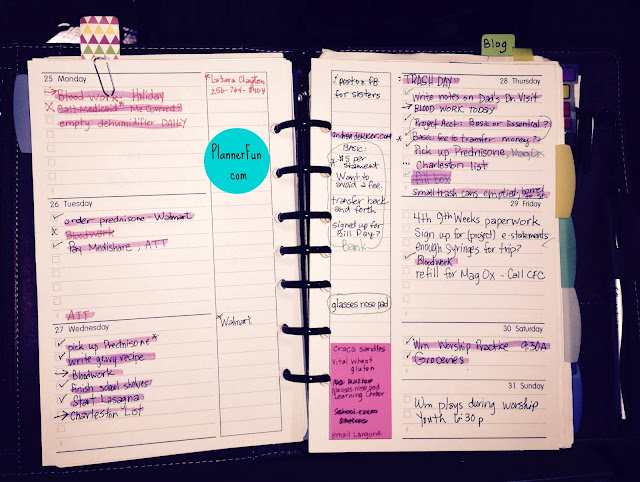 Blog
25 Monday
Blood work - Holiday
Call Medicaid* Me covered?
empty dehumidifier DAILY
*Latara Clayton
256-764-8404
PlannerFun
.com
26 Tuesday
order prednisone - Walmart
Bloodwork
Pay Medishare, ATT
ATT
27 Wednesday
pick up Prednisone*
write gravy recipe
Bloodwork
finish school shelves
Start Lasagna
Charleston List
*Walmart
post on FB
for sisters
Basic:
* $5 per
statement
Want to
avoid a fee.
transfer back
and forth
signed up for
Bill Pay?
Bank
glasses nose pad
Crocs sandles
Vital Wheat
gluten
glasses nose pad
Learning Center
School room
Shelves
email Langorn
28 Thursday
TRASH DAY
write notes on Dad's Dr. Visit
BLOOD WORK TODAY
Project Acct: Basic or Essential?
* Basic fee to transfer money?
Pick up Prednisone, Mag Ox
Charleston list
fill box
small trash cans emptied,
29 Friday
4th 9th Weeks paperwork
Sign up for (project) e-statements
enough syringes for trip?
Bloodwork
refill for Mag Ox - Call CFC
30 Saturday
Wm Worship Practice 9:30A
Groceries
31 Sunday
Wm plays during worship
Youth 6:30p